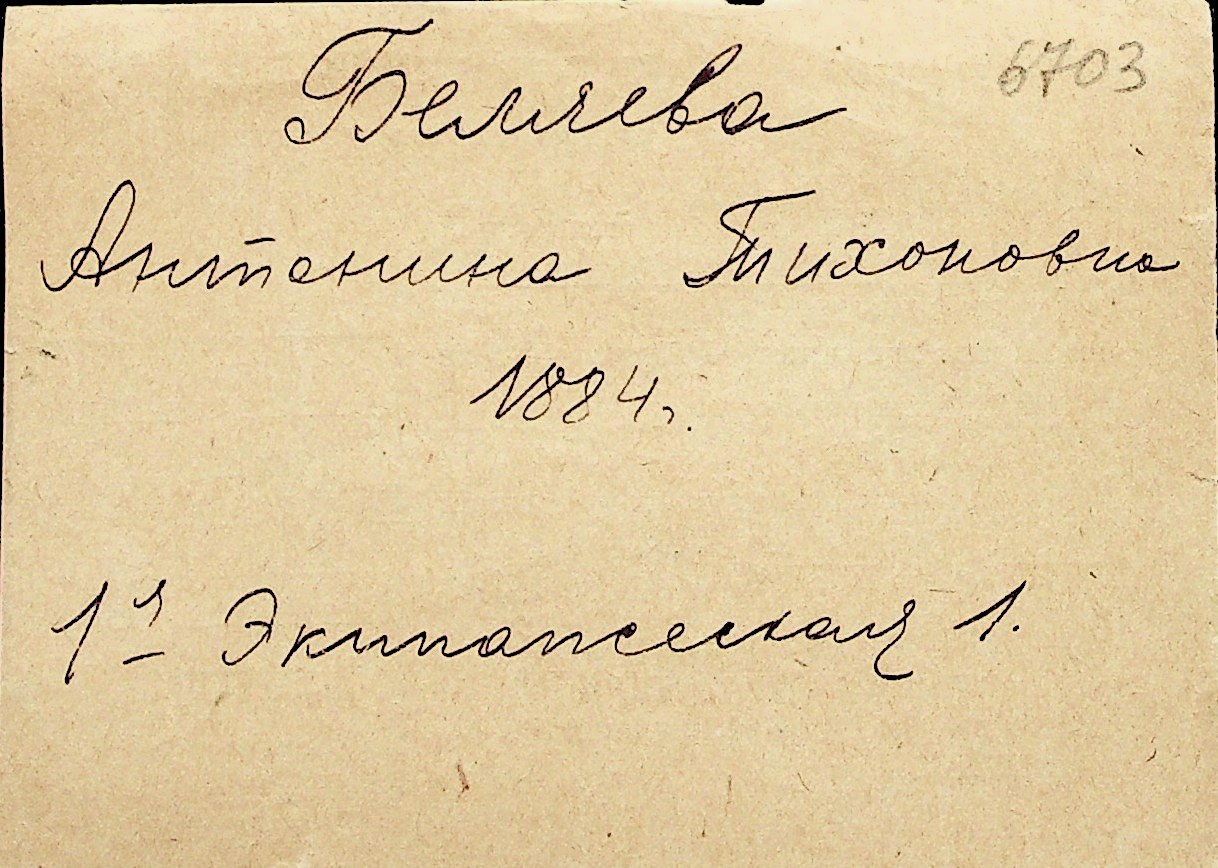 6703
Беляева
Антонина Тихоновна
1884г.
1я Экипажеская 1.